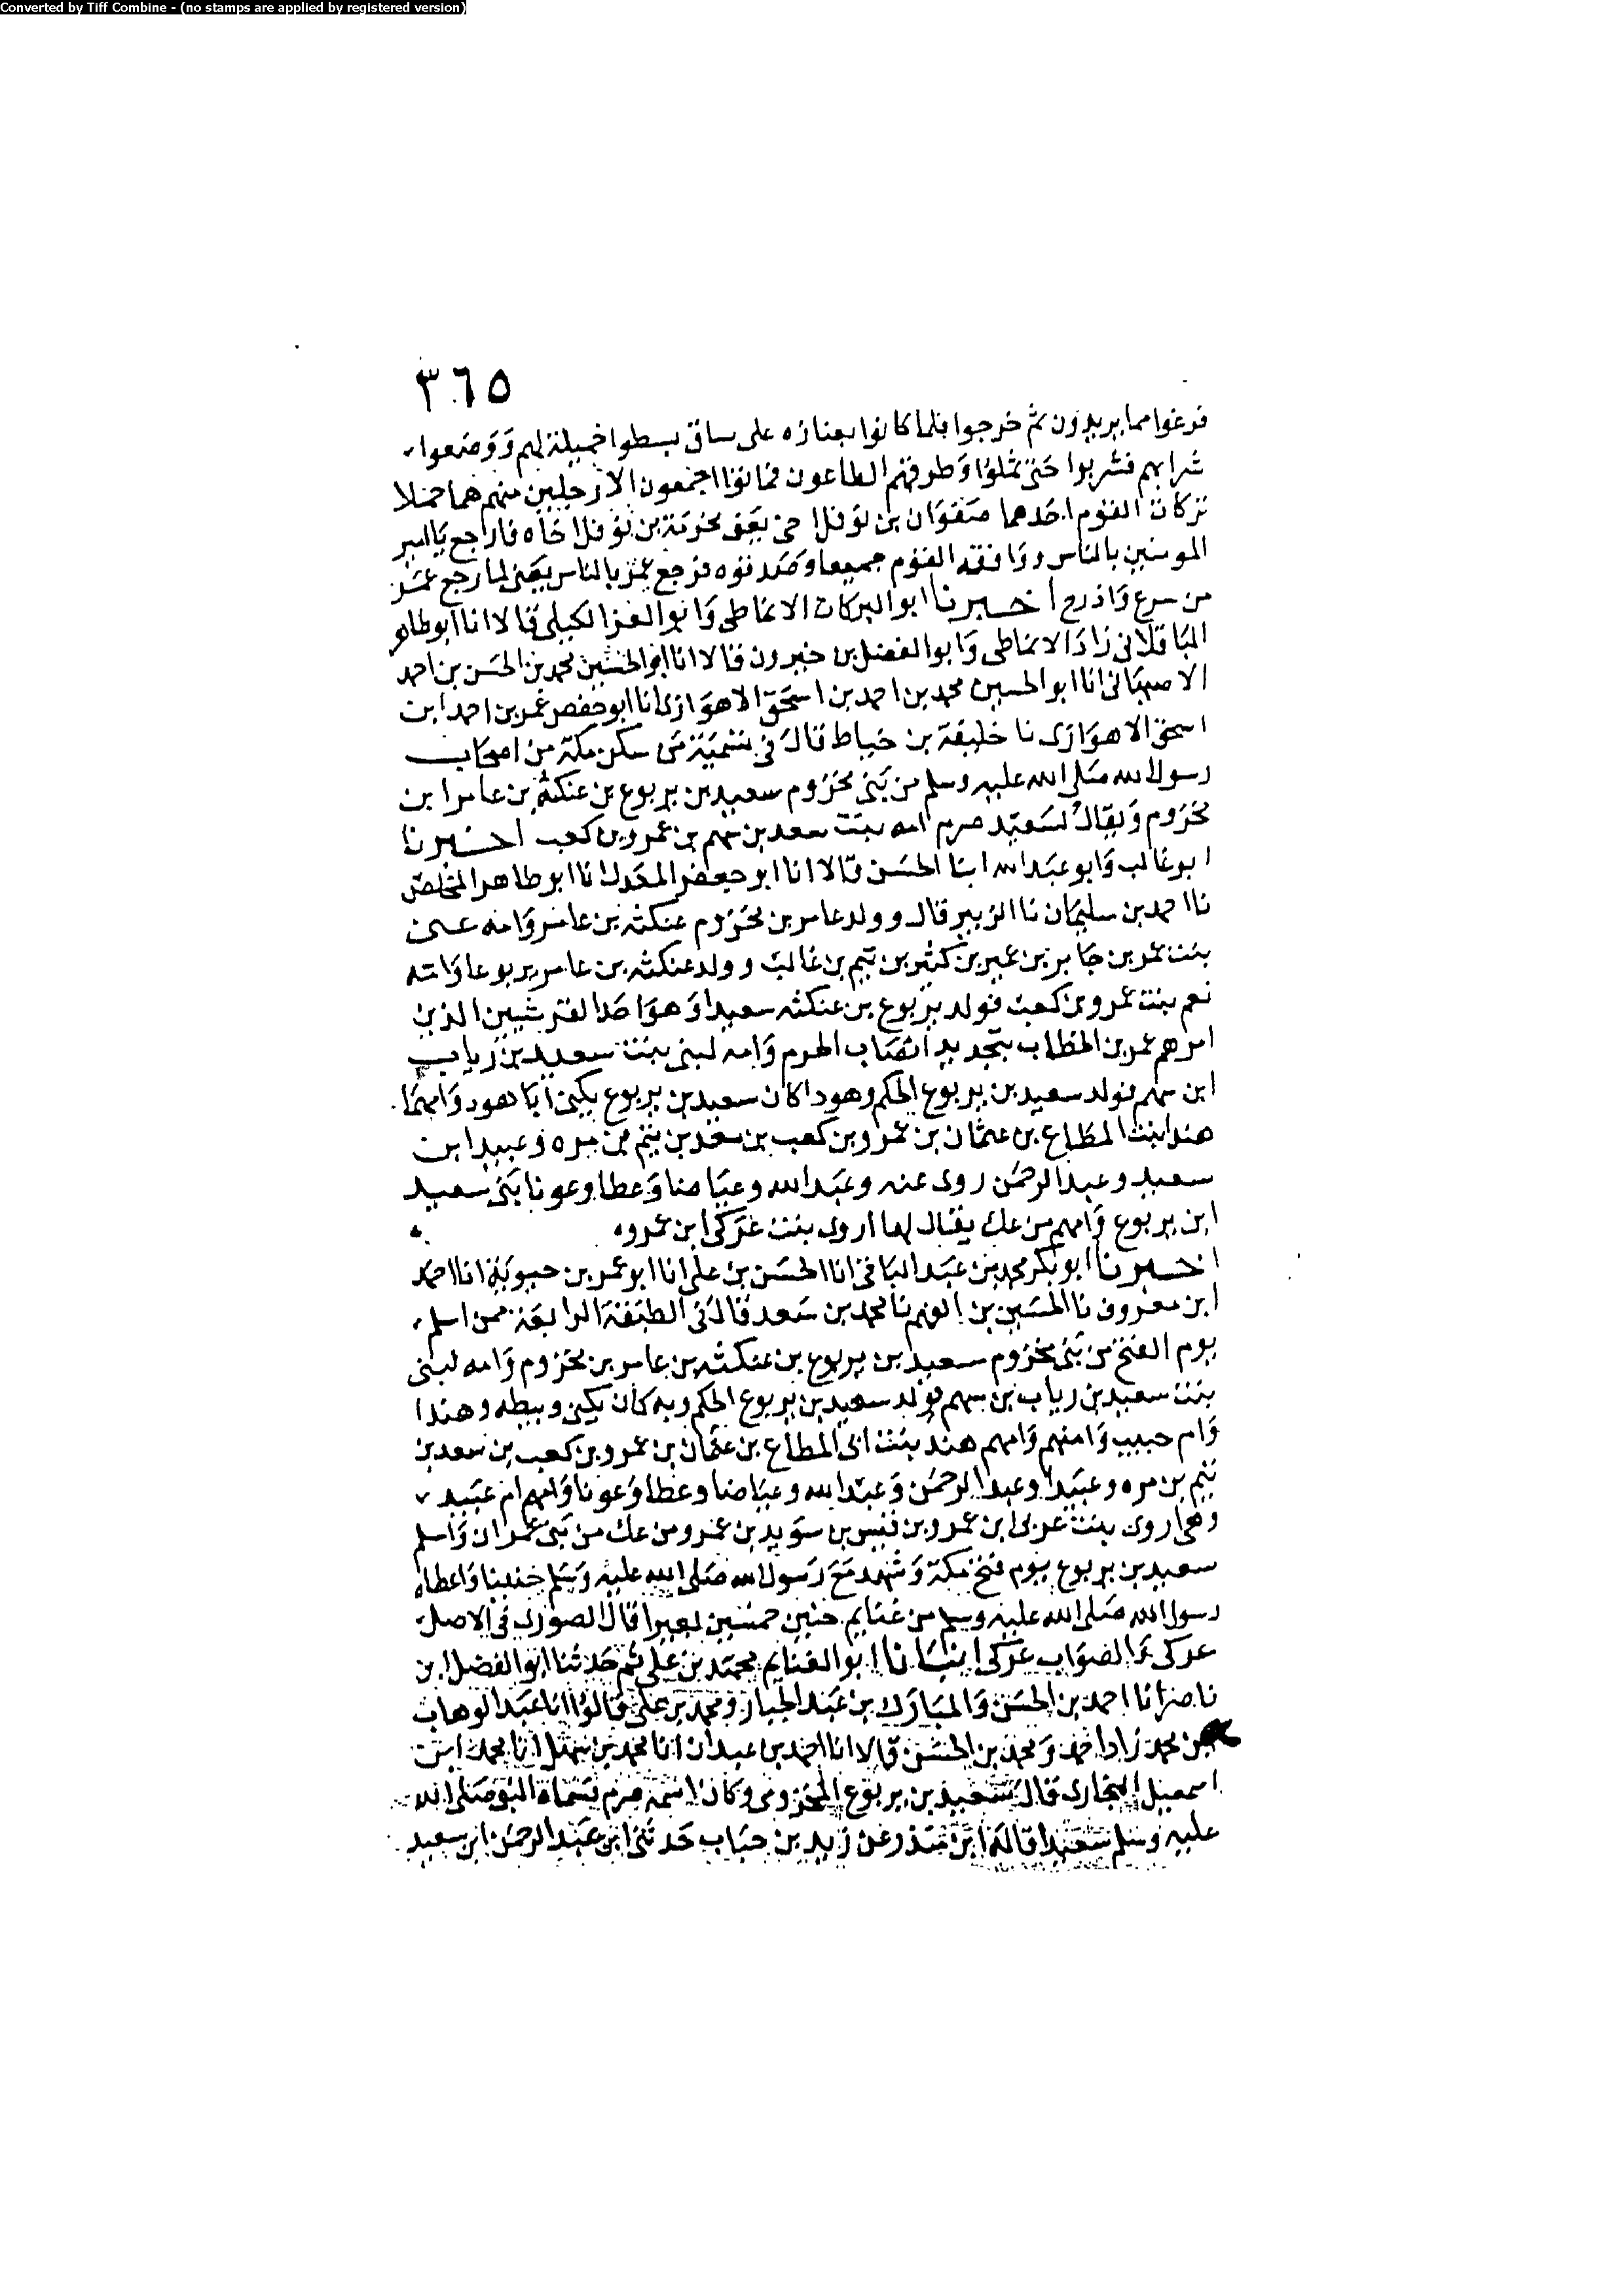 Converted by Tiff Combine - (no stamps are applied by registered version)
٣٦٥
فرغوا مما يريدون ثم خرجوا فلما كانوا بعنازه على ساق بسطوا خميلة لهم ووضعوا
شرابهم فشربوا حتى ثملوا وطرقهم الطاعون فماتوا اجمعون الا رجلين منهم هما حملا
تركات القوم احدهما صفوان بن نوفل اخى يعنى مخرمة بن نوفل اخاه فارجع يا امير
المومنين بالناس ووافقه القوم جميعا وصدقوه فرجع عمر بالناس يعنى لما رجع عمر
من سرع واذرح اخبرنا ابو البركات الانماطى وابو العز الكيلى قالا انا ابو طاهر
الباقلانى زاد الانماطى وابو الفضل بن خيرون قالا انا ابو الحسين محمد بن الحسن بن احمد
الاصبهانى انا ابو الحسين محمد بن احمد بن اسحق الاهوازى انا ابو حفص عمر بن احمد ابن
اسحق الاهوازى نا خليفة بن خياط قال فى تسمية من سكن مكة من اصحاب
رسول الله صلى الله عليه وسلم من بنى مخزوم سعيد بن يربوع بن عنكثة بن عامر ابن
مخزوم ويقال لسعيد صرم امه بنت سعد بن سهم بن عمرو بن كعب اخبرنا
ابو غالب وابو عبد الله ابنا الحسن قالا انا ابو جعفر المعدل انا ابو طاهر المخلص
نا احمد بن سليمان نا الزبير قال وولد عامر بن مخزوم عنكثه بن عامر وامه
بنت عمر بن جابر بن عبير بن كثير بن تيم بن غالب وولد عنكثه بن عامر يربوعا وامه
نعم بنت عمرو بن كعب فولد يربوع بن عنكثه سعيدا وهو احد القرشيين الذين
امرهم عمر بن الخطاب بتجديد انصاب الحرم وامه لبنى بنت سعيد بن رياب
ابن سهم فولد سعيد بن يربوع الحكم وهودا كان سعيد بن يربوع يكنى ابا هود وامهما
هند ابنت المطاع بن عثمان بن عمرو بن كعب بن سعد بن تيم بن مره وعبيد ابن
سعيد وعبد الرحمن روى عنه وعبد الله وعياضا وعطا وعونا بنى سعيد
ابن يربوع وامهم من عك يقال لها اروى بنت عركى ابن عمرو
اخبرنا ابو بكر محمد بن عبد الباقى انا الحسن بن على انا ابو عمر بن حيوية انا احمد
ابن معروف نا الحسين بن الفهم نا محمد بن سعد قال فى الطبقة الرابعة ممن اسلم
يوم الفتح من بنى مخزوم سعيد بن يربوع بن عنكثه بن عامر بن مخزوم وامه لبنى
بنت سعيد بن رياب بن سهم فولد سعيد بن يربوع الحكم وبه كان يكنى وبيطه وهندا
وام حبيب وامنهم وامهم هند بنت ابى المطاع بن عثمان بن عمرو بن كعب بن سعد بن
تيم بن مره وعبيدا وعبد الرحمن وعبد الله وعياضا وعطا وعونا وامهم ام عبيد
وهى اروى بنت عربى ابن عمرو بن قيس بن سويد بن عمرو من عك من بنى عمران واسلم
سعيد بن يربوع يوم فتح مكة وشهد مع رسول الله صلى الله عليه وسلم حنينا واعطاه
رسول الله صلى الله عليه وسلم من غنايم حنين خمسين بعيرا قال الصورى فى الاصل
عركى والصواب عركى انبانا ابو الغنايم محمد بن على ثم حدثنا ابو الفضل ابن
ناصر انا احمد بن الحسن والمبارك بن عبد الجبار ومحمد بن على قالوا انا عبد الوهاب
بن محمد زاد احمد ومحمد بن الحسن قالا انا احمد بن عبدان انا محمد بن سهل انا محمد ابن
اسمعيل البخارى قال سعيد بن يربوع المخزومى وكان اسمه صرم فسماه النبى صلى الله
عليه وسلم سعيدا قاله ابن منذر عن زيد بن حباب حدثنى ابن عبد الرحمن ابن سعيد